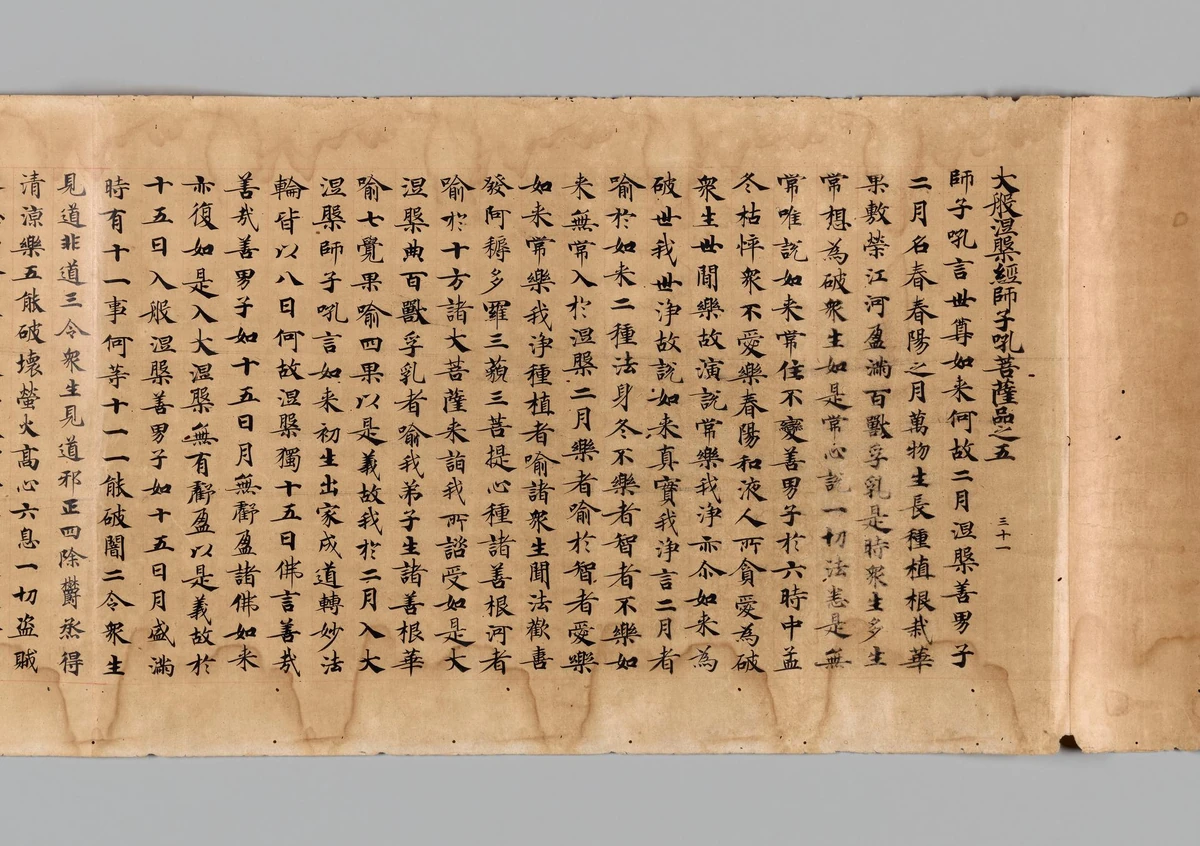 大般涅槃經師子吼菩薩品之五 三十一
師子吼言世尊如来何故二月涅槃善男子
二月名春春陽之月萬物生長種植根栽華
果敷榮江河盈滿百獸孚乳是時衆生多生
常想為破衆生如是常心說一切法悉是無
常唯說如来常住不變善男子於六時中孟
冬枯悴衆不愛樂春陽和液人所貪愛為破
衆生世間樂故演說常樂我淨亦尒如来為
破世我世淨故說如来真實我淨言二月者
喻於如来二種法身冬不樂者智者不樂如
来無常入於涅槃二月樂者喻於智者愛樂
如来常樂我淨種植者喻諸衆生聞法歡喜
發阿耨多羅三藐三菩提心種諸善根河者
喻於十方諸大菩薩来詣我所諮受如是大
涅槃典百獸孚乳者喻我弟子生諸善根華
喻七覺果喻四果以是義故我於二月入大
涅槃師子吼言如来初生出家成道轉妙法
輪皆以八日何故涅槃獨十五日佛言善哉
善哉善男子如十五日月無虧盈諸佛如来
亦復如是入大涅槃無有虧盈以是義故於
十五日入般涅槃善男子如十五日月盛滿
時有十一事何等十一一能破闇二令衆生
見道非道三令衆生見道邪正四除欝烝得
清涼樂五能破壞螢火高心六息一切盜賊